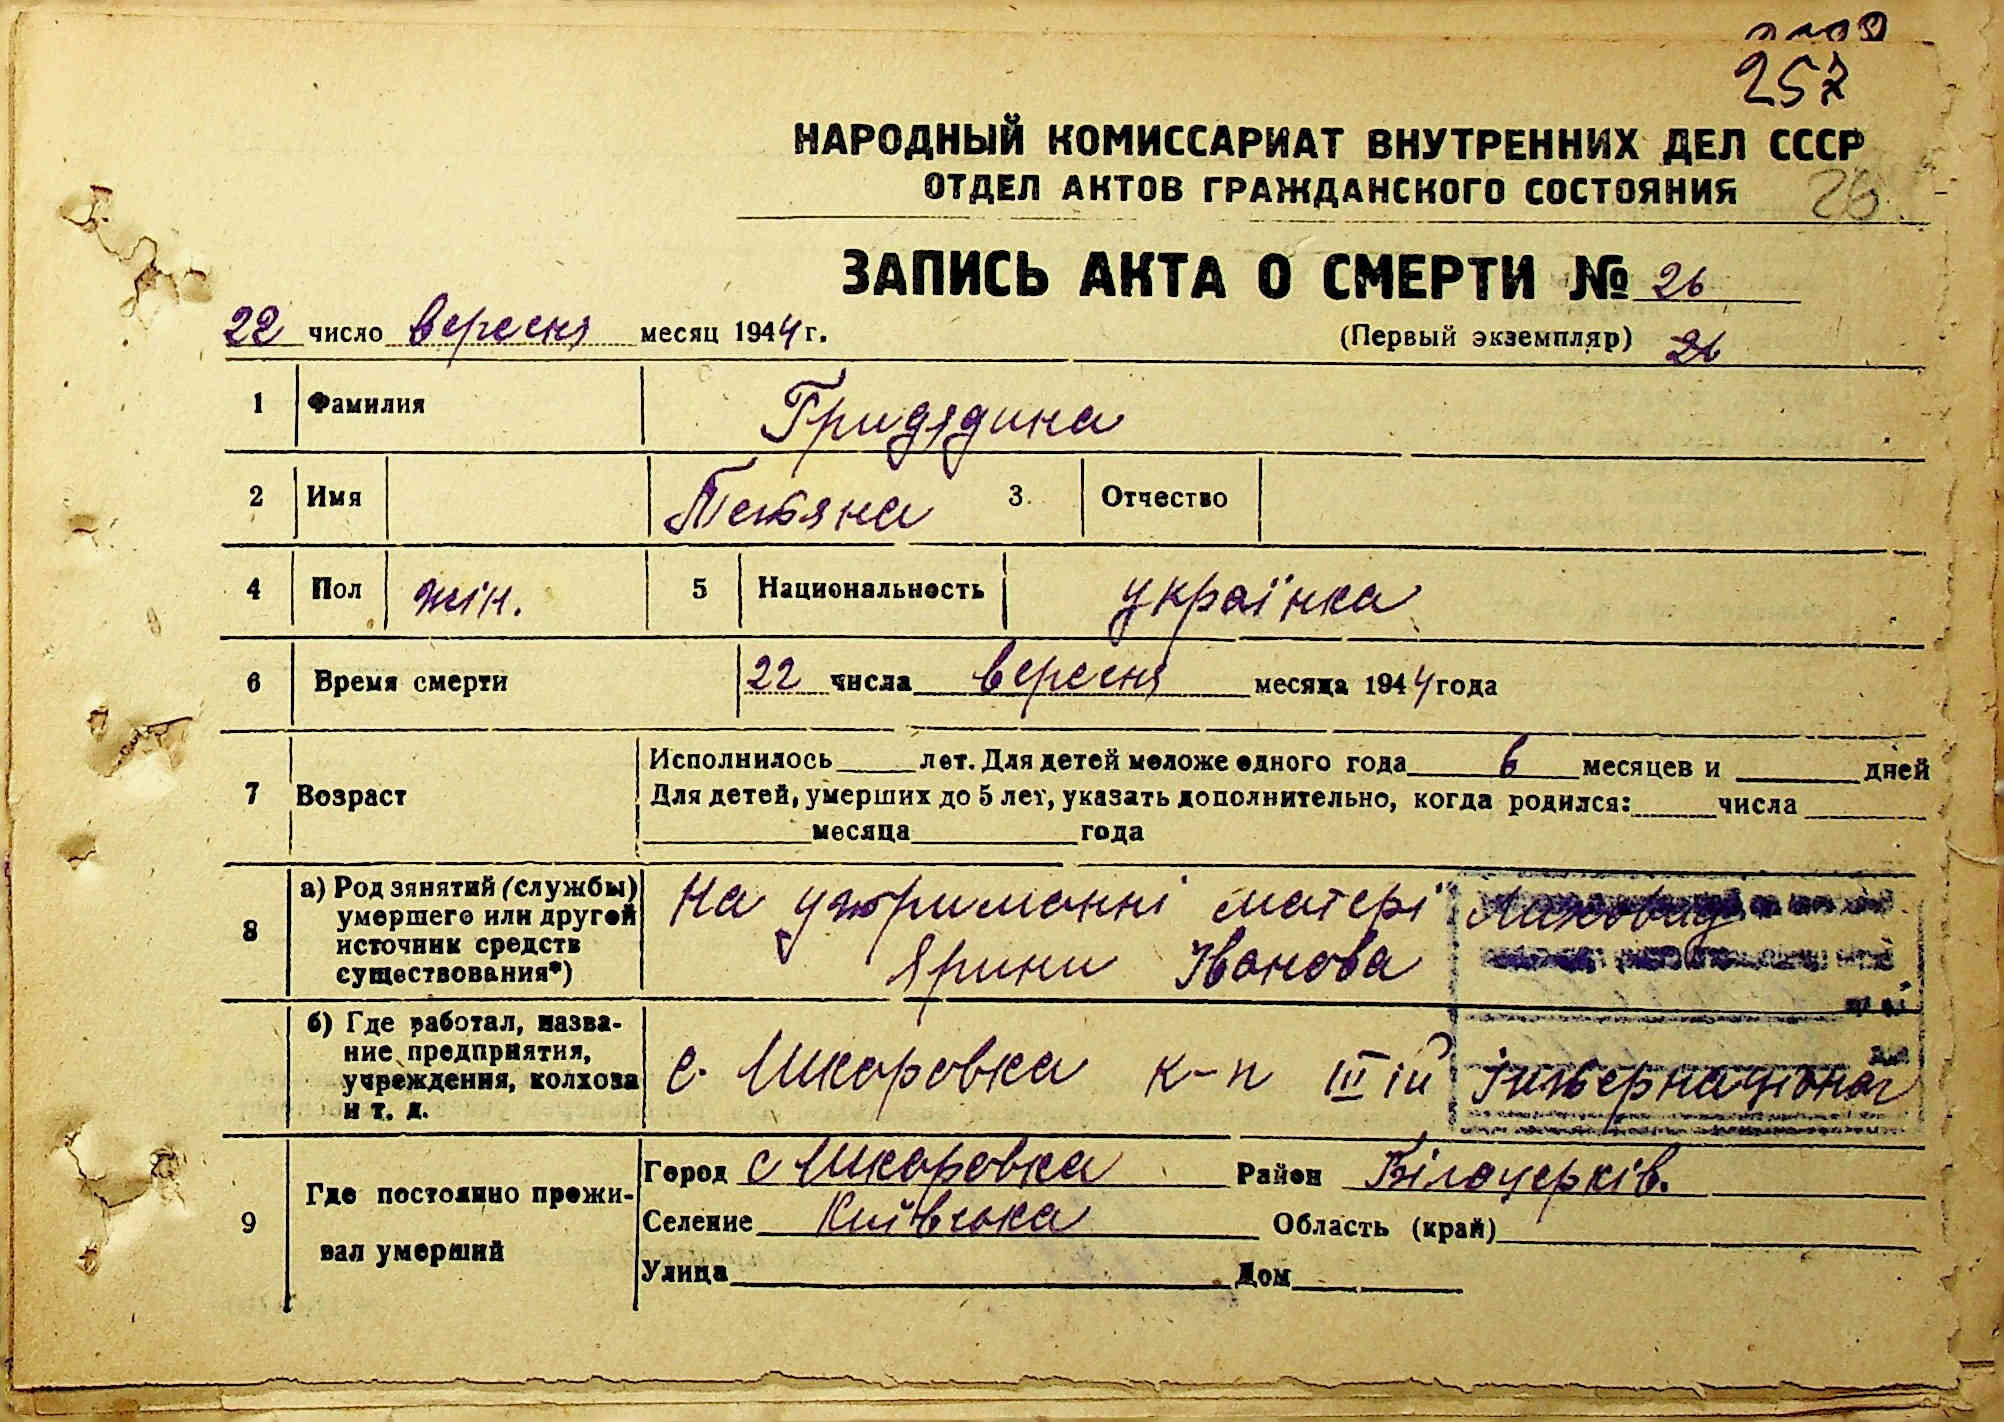 257
НАРОДНЫЙ КОМИССАРИАТ ВНУТРЕННИХ ДЕЛ СССР
ОТДЕЛ АКТОВ ГРАЖДАНСКОГО СОСТОЯНИЯ 26
ЗАПИСЬ АКТА О СМЕРТИ № 26
22 число вересня месяц 1944 г. (Первый экземпляр) 26
1 Фамилия Гридядина
2 Имя Тетяна 3. Отчество
4 Пол жін. 5 Национальность українка
6 Время смерти 22 числа вересня месяца 1944 года
7 Возраст Исполнилось лет. Для детей моложе одного года 6 месяцев и дней
Для детей, умерших до 5 лет, указать дополнительно, когда родился: числа
месяца года
8 а) Род занятий (службы) умершего или другой источник средств существования*) На утриманні матері
Ярини Іванова
б) Где работал, название предприятия, учреждения, колхоза и т. д. с. Шкоровка к-п III ій Інтернаціонал
9 Где постоянно проживал умерший Город с Шкоровка Район Білоцерків.
Селение Київська Область (край)
Улица Дом